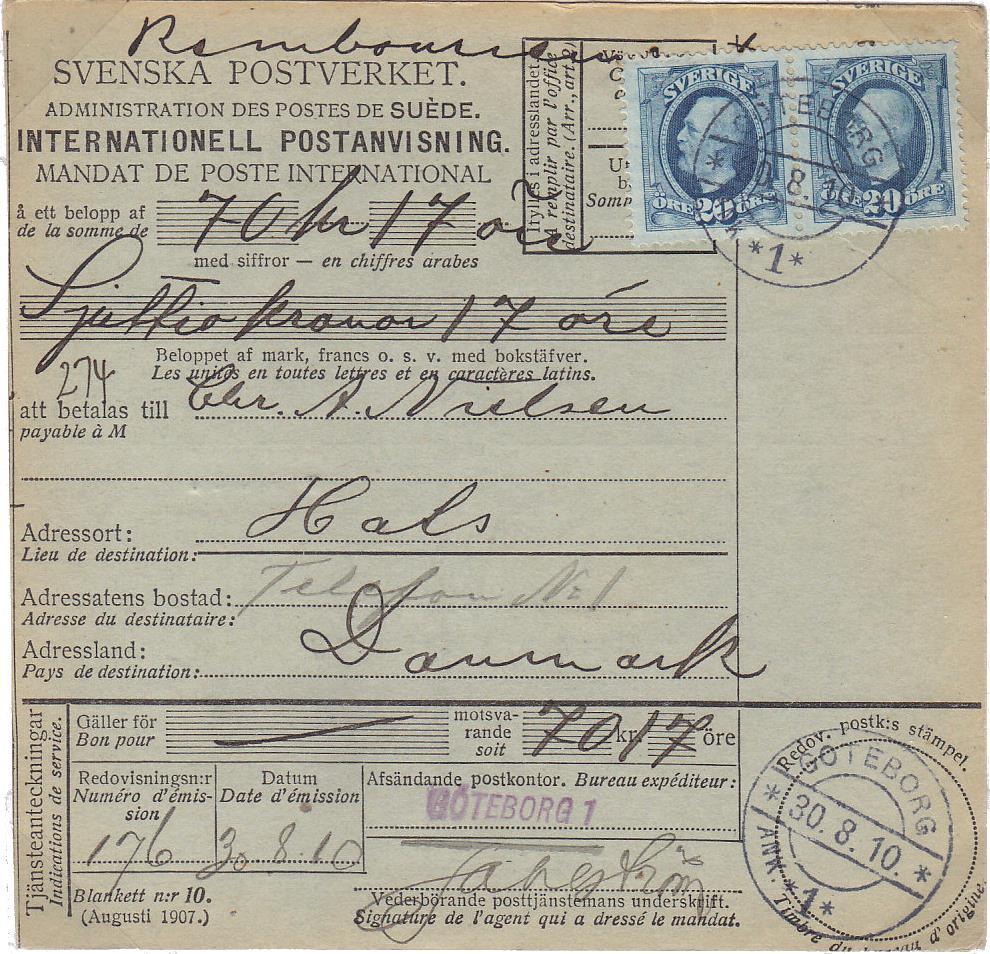 SVENSKA POSTVERKET.
ADMINISTRATION DES POSTES DE SUÈDE.
INTERNATIONELL POSTANVISNING.
MANDAT DE POSTE INTERNATIONAL
å ett belopp af 70 kr 17 öre
de la somme de
med siffror — en chiffres arabes
Ifylles i adresslandet.
A remplir par l'office
destinataire. (Arr., art. 2)
Somm
SVERIGE SVERIGE
ÖRE 20 ÖRE 20 ÖRE
GÖTEBORG
30.8.10.
*1*
Sjuttio kronor 17 öre
Beloppet af mark, francs o. s. v. med bokstäfver.
Les unités en toutes lettres et en caractères latins.
274
att betalas till Chr. A. Nielsen
payable à M
Adressort: Hals
Lieu de destination:
Adressatens bostad: Telefon No 1
Adresse du destinataire:
Adressland: Danmark
Pays de destination:
Tjänsteanteckningar
Indications de service.
Gäller för
Bon pour
motsva-
rande 70 kr. 17 öre
soit
Redovisningsn:r
Numéro d'émis-
sion
176
Datum
Date d'émission
30.8.10
Afsändande postkontor. Bureau expéditeur:
GÖTEBORG 1
Vederbörande posttjänstemans underskrift.
Signature de l'agent qui a dressé le mandat.
Blankett n:r 10.
(Augusti 1907.)
Redov. postk:s stämpel.
GÖTEBORG
30.8.10.
ANK. *1*
Timbre du bureau d'origine.